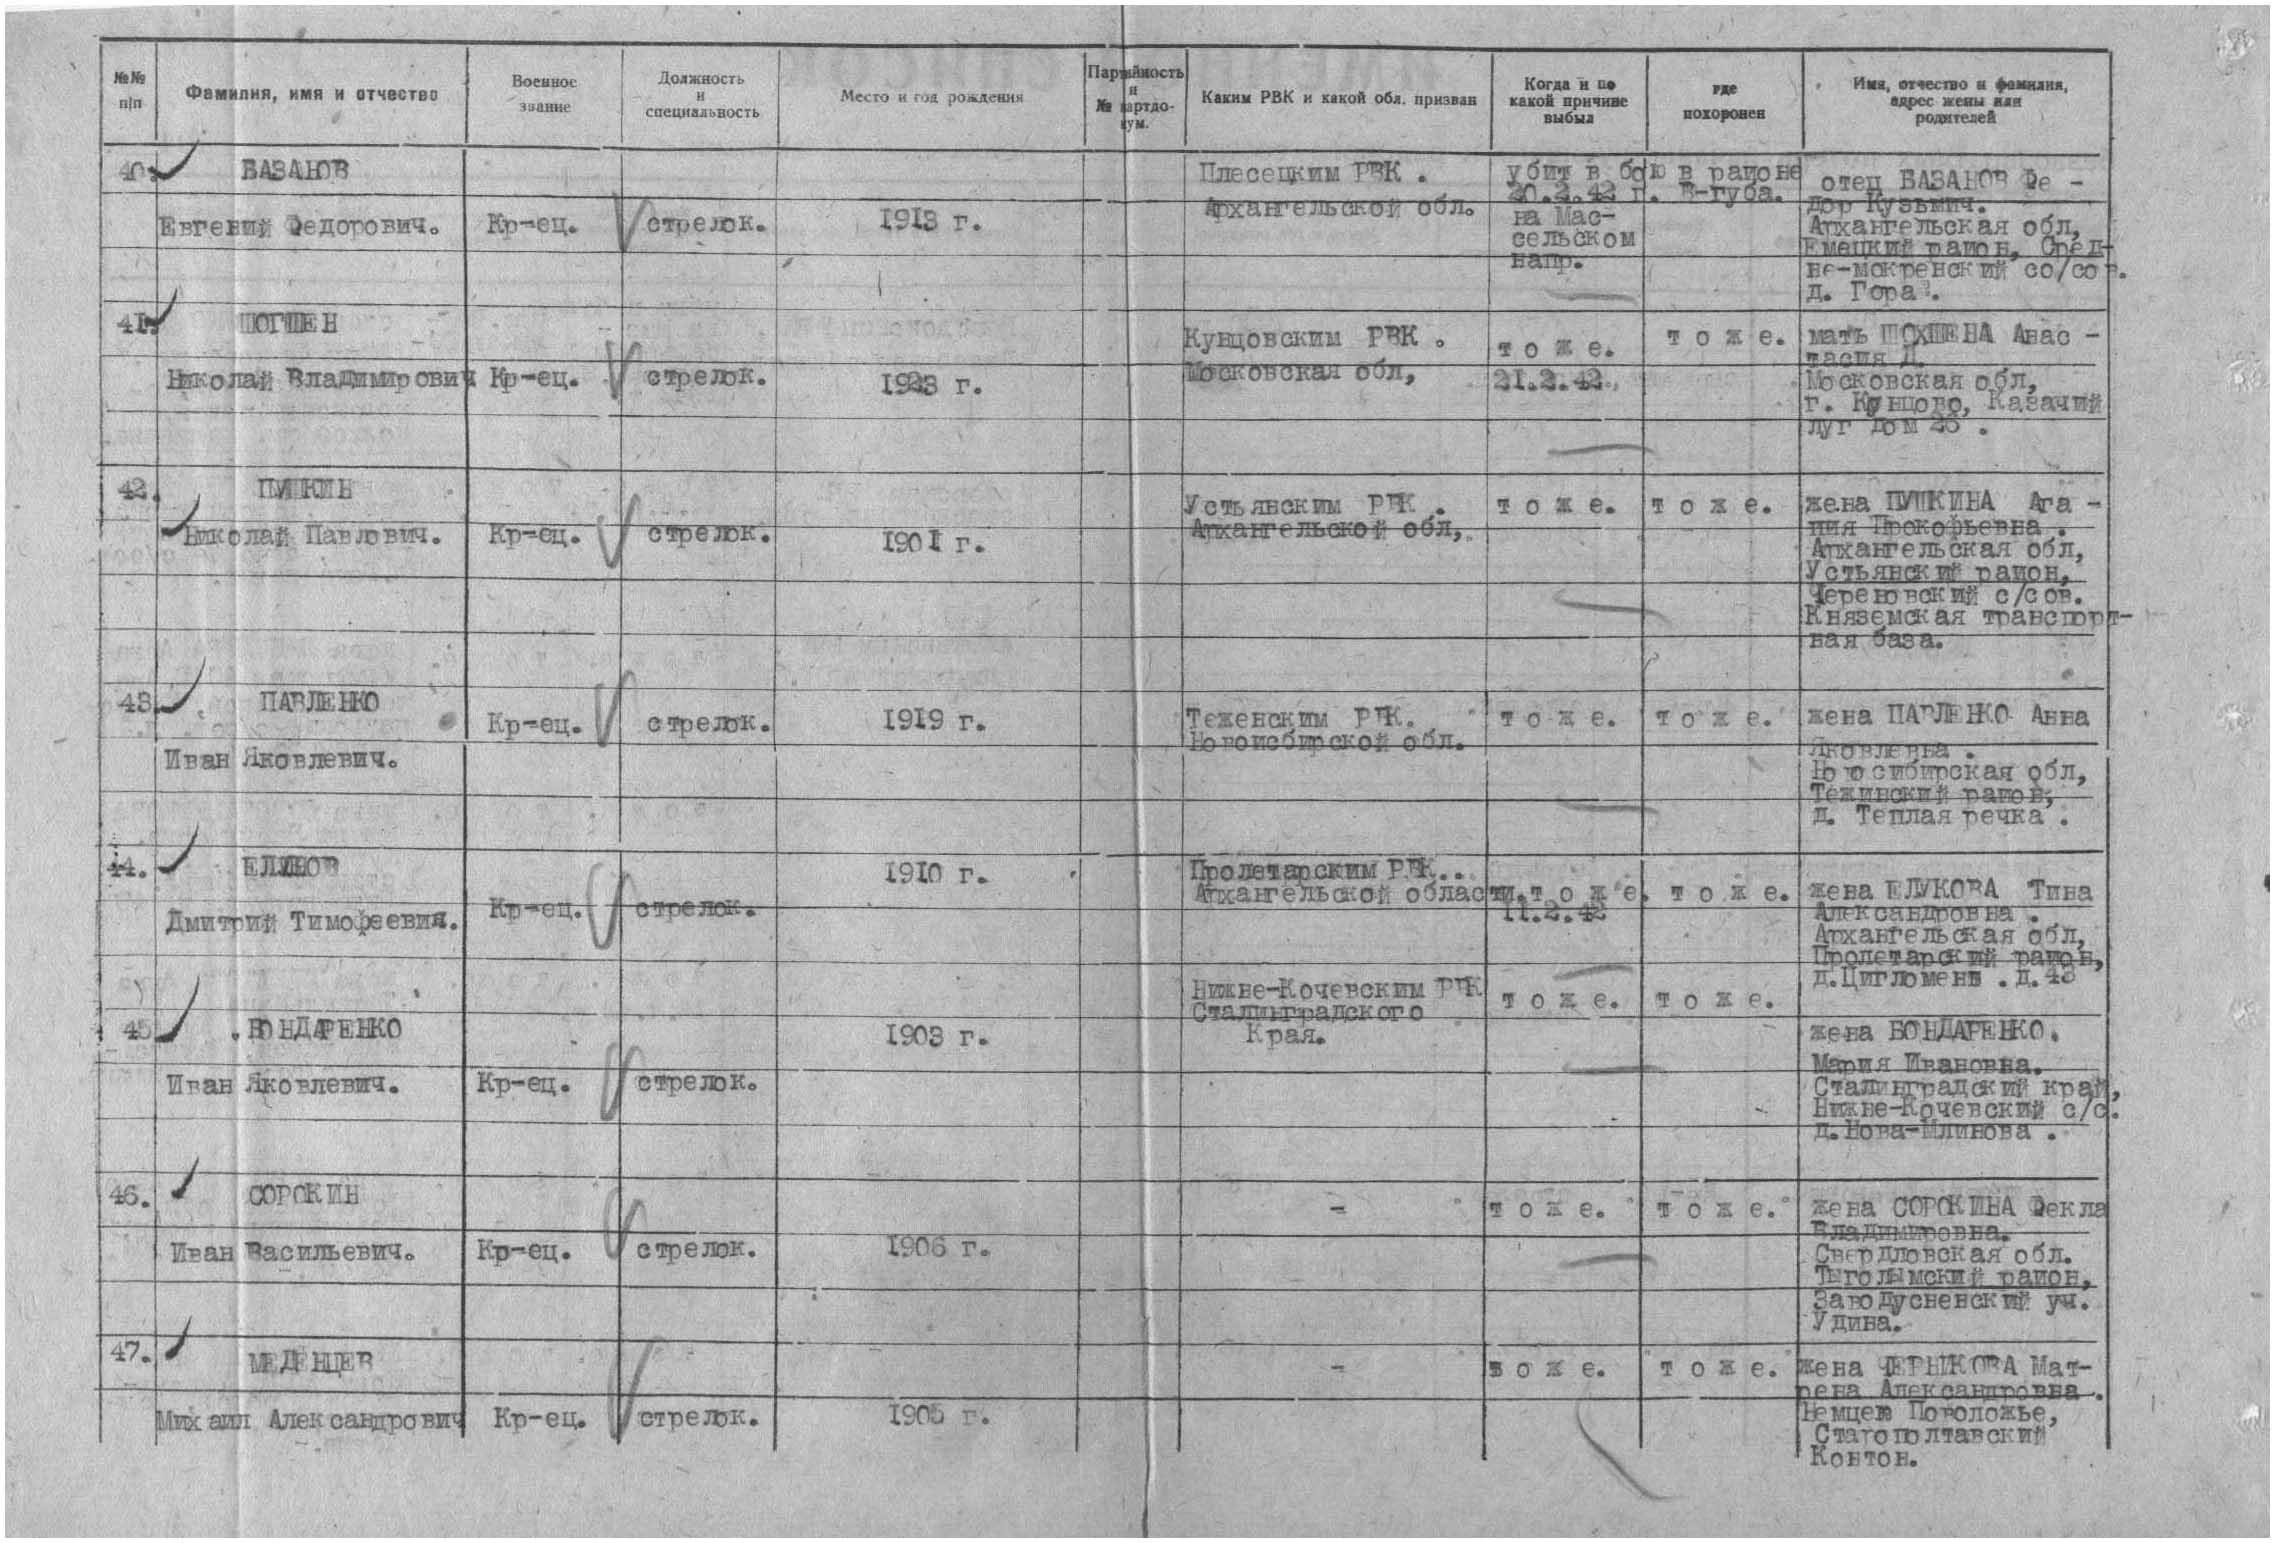 №№ п/п
Фамилия, имя и отчество
Военное звание
Должность и специальность
Место и год рождения
Партийность и № партдокум.
Каким РВК и какой обл. призван
Когда и по какой причине выбыл
где похоронен
Имя, отчество и фамилия, адрес жены или родителей
40.
БАЗАНОВ
Евгений Федорович.
Кр-ец.
стрелок.
1913 г.
Плесецким РВК .
Архангельской обл.
убит в бою в районе
20.2.42 г. В-губа.
на Мас-
сельском
напр.
отец БАЗАНОВ Фе -
дор Кузьмич.
Архангельская обл,
Емецкий район, Сред-
не-мокренский со/сов.
д. Гора .
41.
ШОГШЕН
Николай Владимирович
Кр-ец.
стрелок.
1923 г.
Кунцовским РВК .
Московская обл,
т о ж е.
21.2.42.
т о ж е.
мать ШОХШЕНА Анас -
тасия Д.
Московская обл,
г. Кунцово, Казачий
луг дом 26 .
42.
ПУШКИН
Николай Павлович.
Кр-ец.
стрелок.
1901 г.
Устьянским РВК .
Архангельской обл,
т о ж е.
т о ж е.
жена ПУШКИНА Ага -
пия Прокофьевна .
Архангельская обл,
Устьянский район,
Череновский с/сов.
Княземская транспорт-
ная база.
43.
ПАВЛЕНКО
Иван Яковлевич.
Кр-ец.
стрелок.
1919 г.
Теженским РВК.
Новоисбирской обл.
т о ж е.
т о ж е.
жена ПАВЛЕНКО Анна
Яковлевна .
Новосибирская обл,
Тежинский район,
д. Теплая речка .
44.
Дмитрий Тимофеевич.
Кр-ец.
стрелок.
1910 г.
Пролетарским РВК..
Архангельской области.
т о ж е.
11.2.42
т о ж е.
жена ЕЛУКОВА Тина
Александровна .
Архангельская обл,
Пролетарский район,
д.Цигломень .д.43
45
БОНДАРЕНКО
Иван Яковлевич.
Кр-ец.
стрелок.
1903 г.
Нижне-Кочевским РВК
Сталинградского
Края.
т о ж е.
т о ж е.
жена БОНДАРЕНКО.
Мария Ивановна.
Сталинградский край,
Нижне-Кочевский с/с.
д.Нова-Млинова .
46.
СОРОКИН
Иван Васильевич.
Кр-ец.
стрелок.
1906 г.
-
т о ж е.
т о ж е.
жена СОРОКИНА Фекла
Владимировна.
Свердловская обл.
Тыголымский район,
Заводусневский уч.
Удина.
47.
МЕДЕНЦЕВ
Михаил Александрович
Кр-ец.
стрелок.
1905 г.
-
т о ж е.
т о ж е.
жена ЧЕРНИКОВА Мат-
рена Александровна .
Немцев Поволожье,
Старополтавский
Контон.